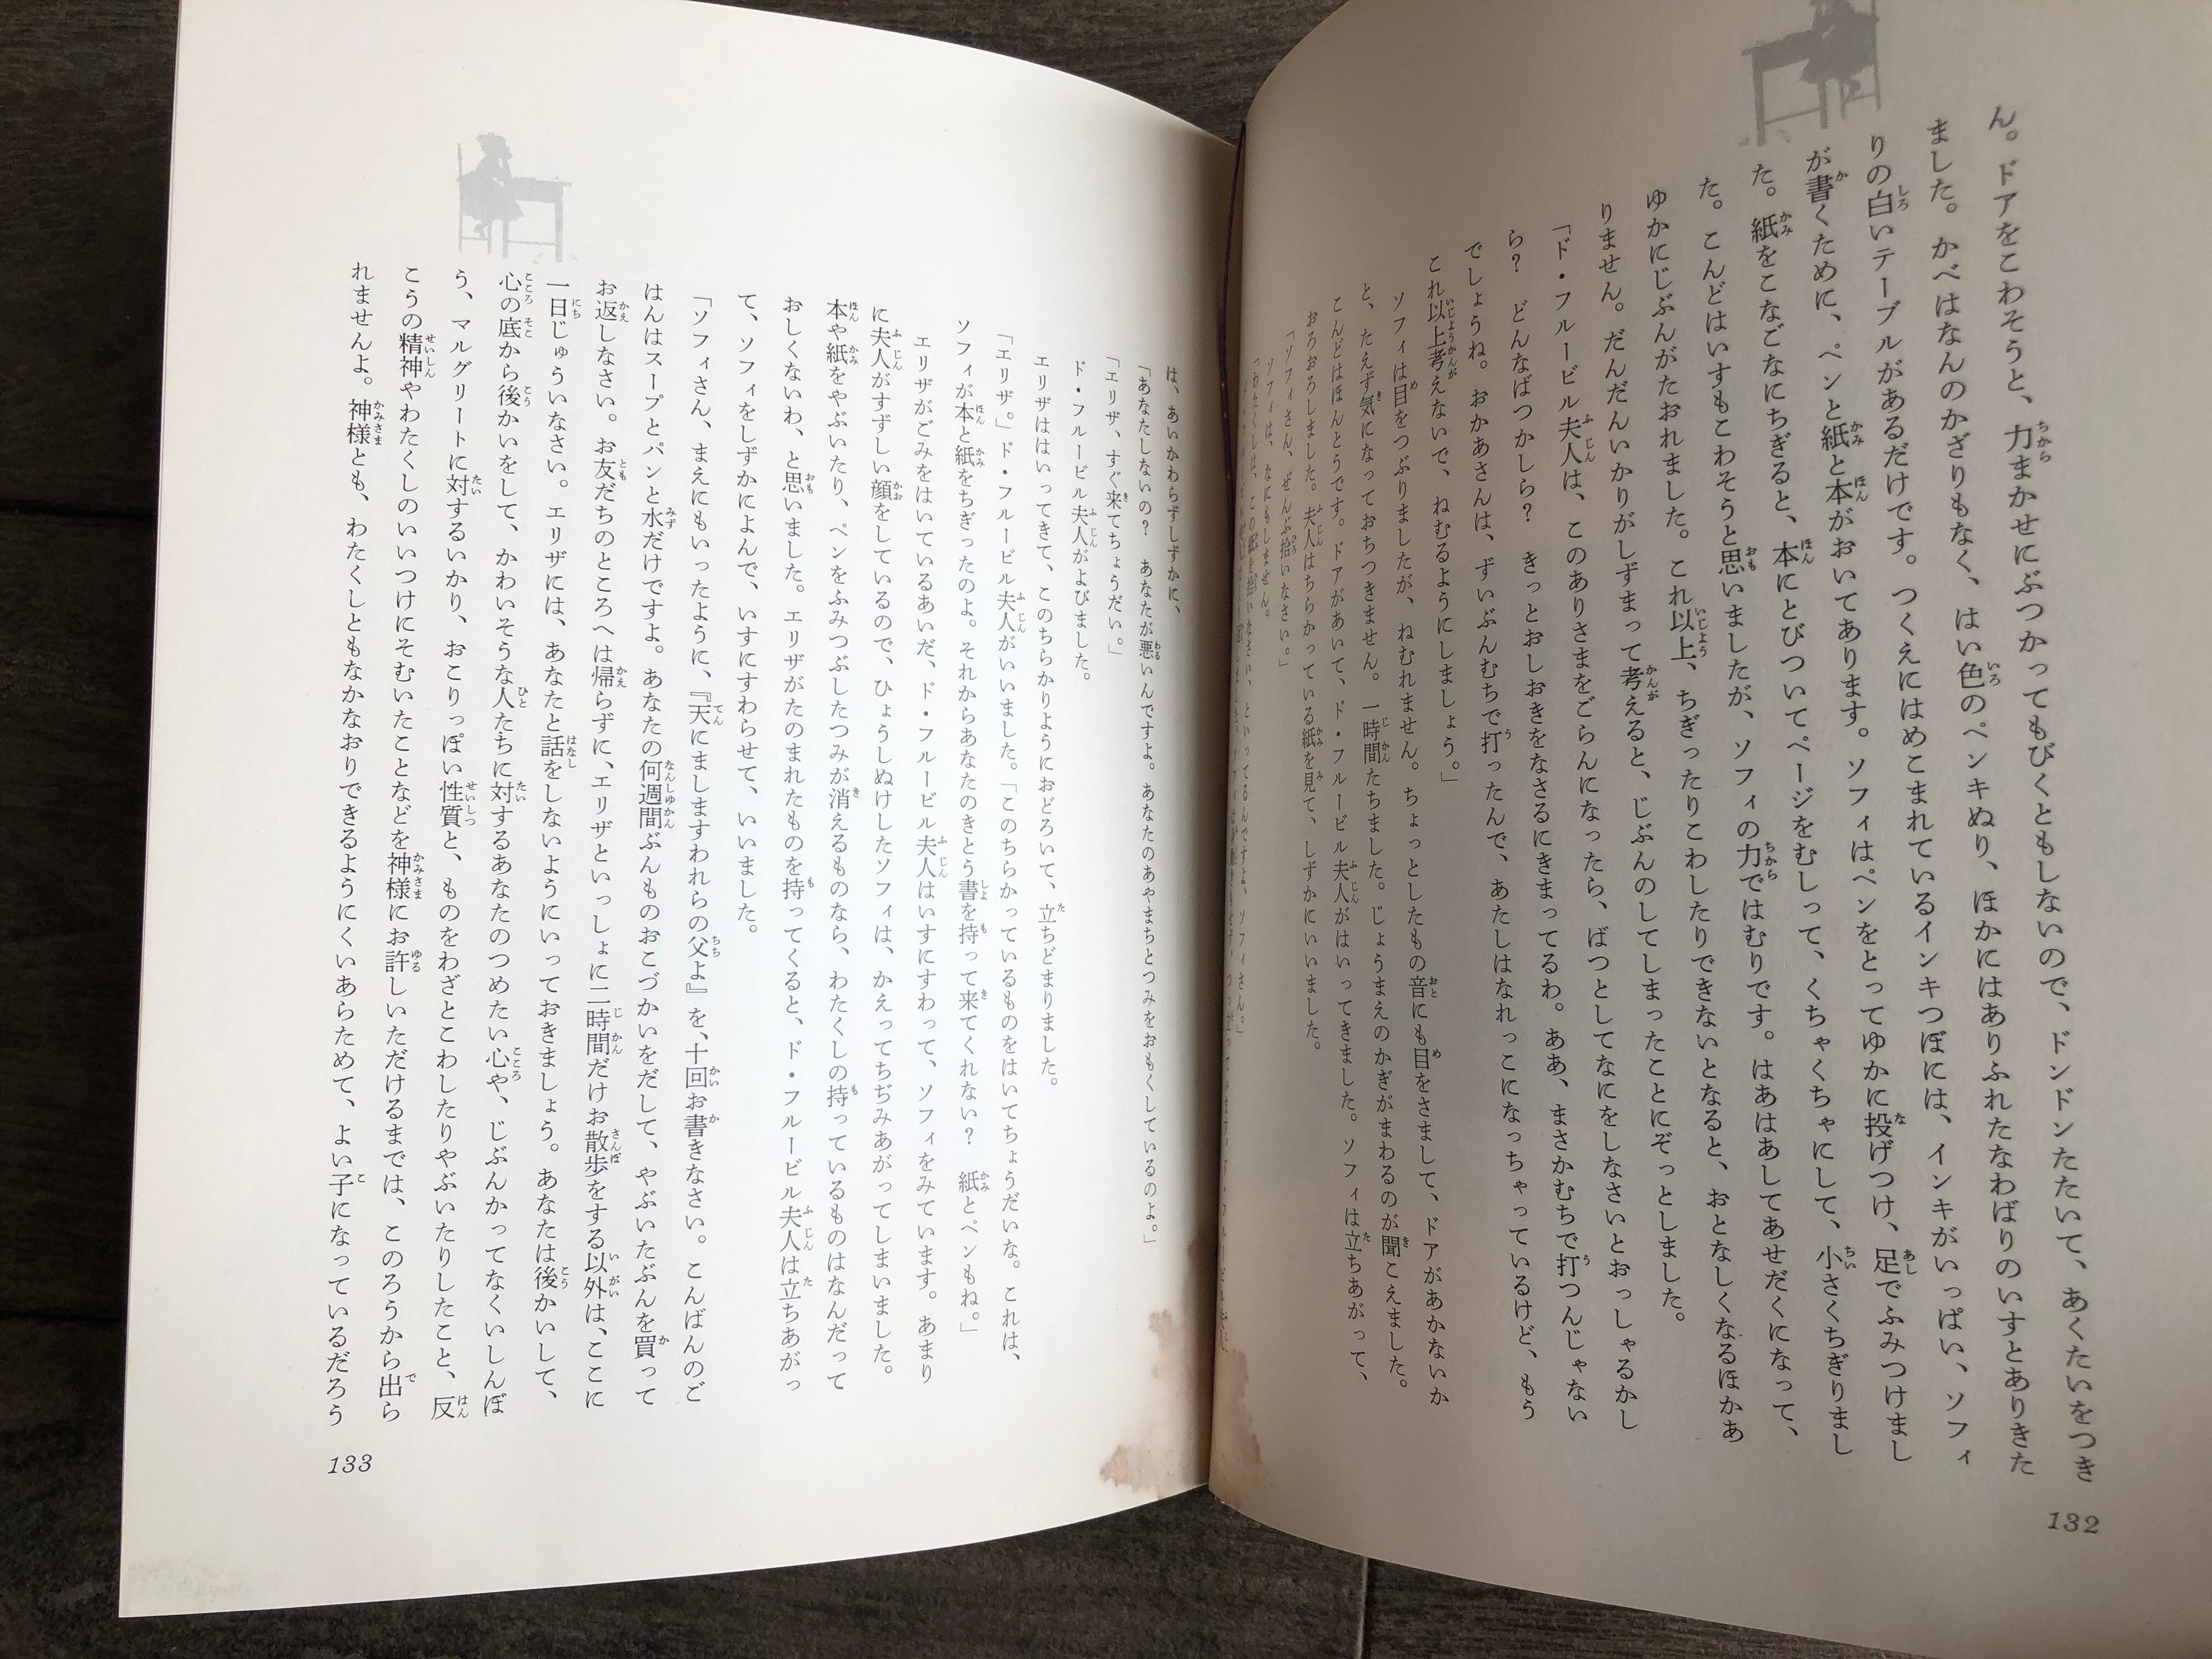 ん。ドアをこわそうと、力まかせにぶつかってもびくともしないので、ドンドンたたいて、あくたいをつき
ました。かべはなんのかざりもなく、はい色のペンキぬり、ほかにはありふれたなわばりのいすとありきた
りの白いテーブルがあるだけです。つくえにはめこまれているインキつぼには、インキがいっぱい、ソフィ
が書くために、ペンと紙と本がおいてあります。ソフィはペンをとってゆかに投げつけ、足でふみつけまし
た。紙をこなごなにちぎると、本にとびついてページをむしって、くちゃくちゃにして、小さくちぎりまし
た。こんどはいすもこわそうと思いましたが、ソフィの力ではむりです。はあはあしてあせだくになって、
ゆかにじぶんがたおれました。これ以上、ちぎったりこわしたりできないとなると、おとなしくなるほかあ
りません。だんだんいかりがしずまって考えると、じぶんのしてしまったことにぞっとしました。
「ド・フルービル夫人は、このありさまをごらんになったら、ばつとしてなにをしなさいとおっしゃるかし
ら? どんなばつかしら? きっとおしおきをなさるにきまってるわ。ああ、まさかむちで打つんじゃない
でしょうね。おかあさんは、ずいぶんむちで打ったんで、あたしはなれっこになっちゃっているけど、もう
これ以上考えないで、ねむるようにしましょう。」
ソフィは目をつぶりましたが、ねむれません。ちょっとしたもの音にも目をさまして、ドアがあかないか
と、たえず気になっておちつきません。一時間たちました。じょうまえのかぎがまわるのが聞こえました。
こんどはほんとうです。ドアがあいて、ド・フルービル夫人がはいってきました。ソフィは立ちあがって、
おろおろしました。夫人はちらかっている紙を見て、しずかにいいました。
「ソフィさん、ぜんぶ拾いなさい。」
ソフィは、なにもしません。
「わたくしは、この紙を拾いなさい、といってるんですよ、ソフィさん。」
132
は、あいかわらずしずかに、
「あなたしないの? あなたが悪いんですよ。あなたのあやまちとつみをおもくしているのよ。」
「エリザ、すぐ来てちょうだい。」
ド・フルービル夫人がよびました。
エリザははいってきて、このちらかりようにおどろいて、立ちどまりました。
「エリザ。」ド・フルービル夫人がいいました。「このちらかっているものをはいてちょうだいな。これは、
ソフィが本と紙をちぎったのよ。それからあなたのきとう書を持って来てくれない? 紙とペンもね。」
エリザがごみをはいているあいだ、ド・フルービル夫人はいすにすわって、ソフィをみています。あまり
に夫人がすずしい顔をしているので、ひょうしぬけしたソフィは、かえってちぢみあがってしまいました。
本や紙をやぶいたり、ペンをふみつぶしたつみが消えるものなら、わたくしの持っているものはなんだって
おしくないわ、と思いました。エリザがたのまれたものを持ってくると、ド・フルービル夫人は立ちあがっ
て、ソフィをしずかによんで、いすにすわらせて、いいました。
「ソフィさん、まえにもいったように、『天にましますわれらの父よ』を、十回お書きなさい。こんばんのご
はんはスープとパンと水だけですよ。あなたの何週間ぶんものおこづかいをだして、やぶいたぶんを買って
お返しなさい。お友だちのところへは帰らずに、エリザといっしょに二時間だけお散歩をする以外は、ここに
一日じゅういなさい。エリザには、あなたと話をしないようにいっておきましょう。あなたは後かいして、
心の底から後かいをして、かわいそうな人たちに対するあなたのつめたい心や、じぶんかってなくいしんぼ
う、マルグリートに対するいかり、おこりっぽい性質と、ものをわざとこわしたりやぶいたりしたこと、反
こうの精神やわたくしのいいつけにそむいたことなどを神様にお許しいただけるまでは、このろうから出ら
れませんよ。神様とも、わたくしともなかなおりできるようにくいあらためて、よい子になっているだろう
133